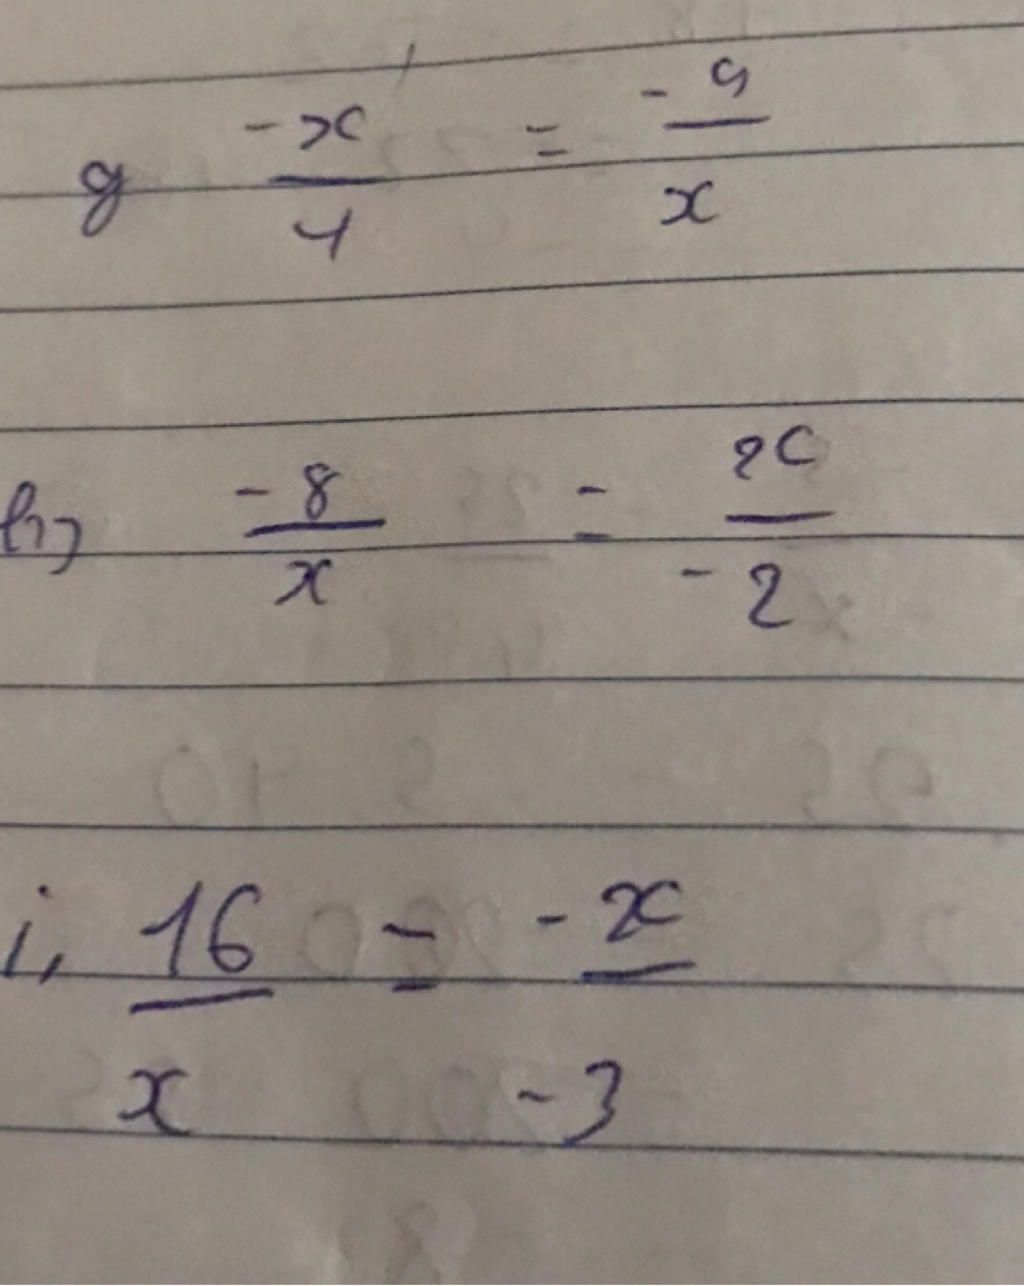 g -x/4 = -9/x
h) -8/x = x/-2
i, 16/x = -x/-3